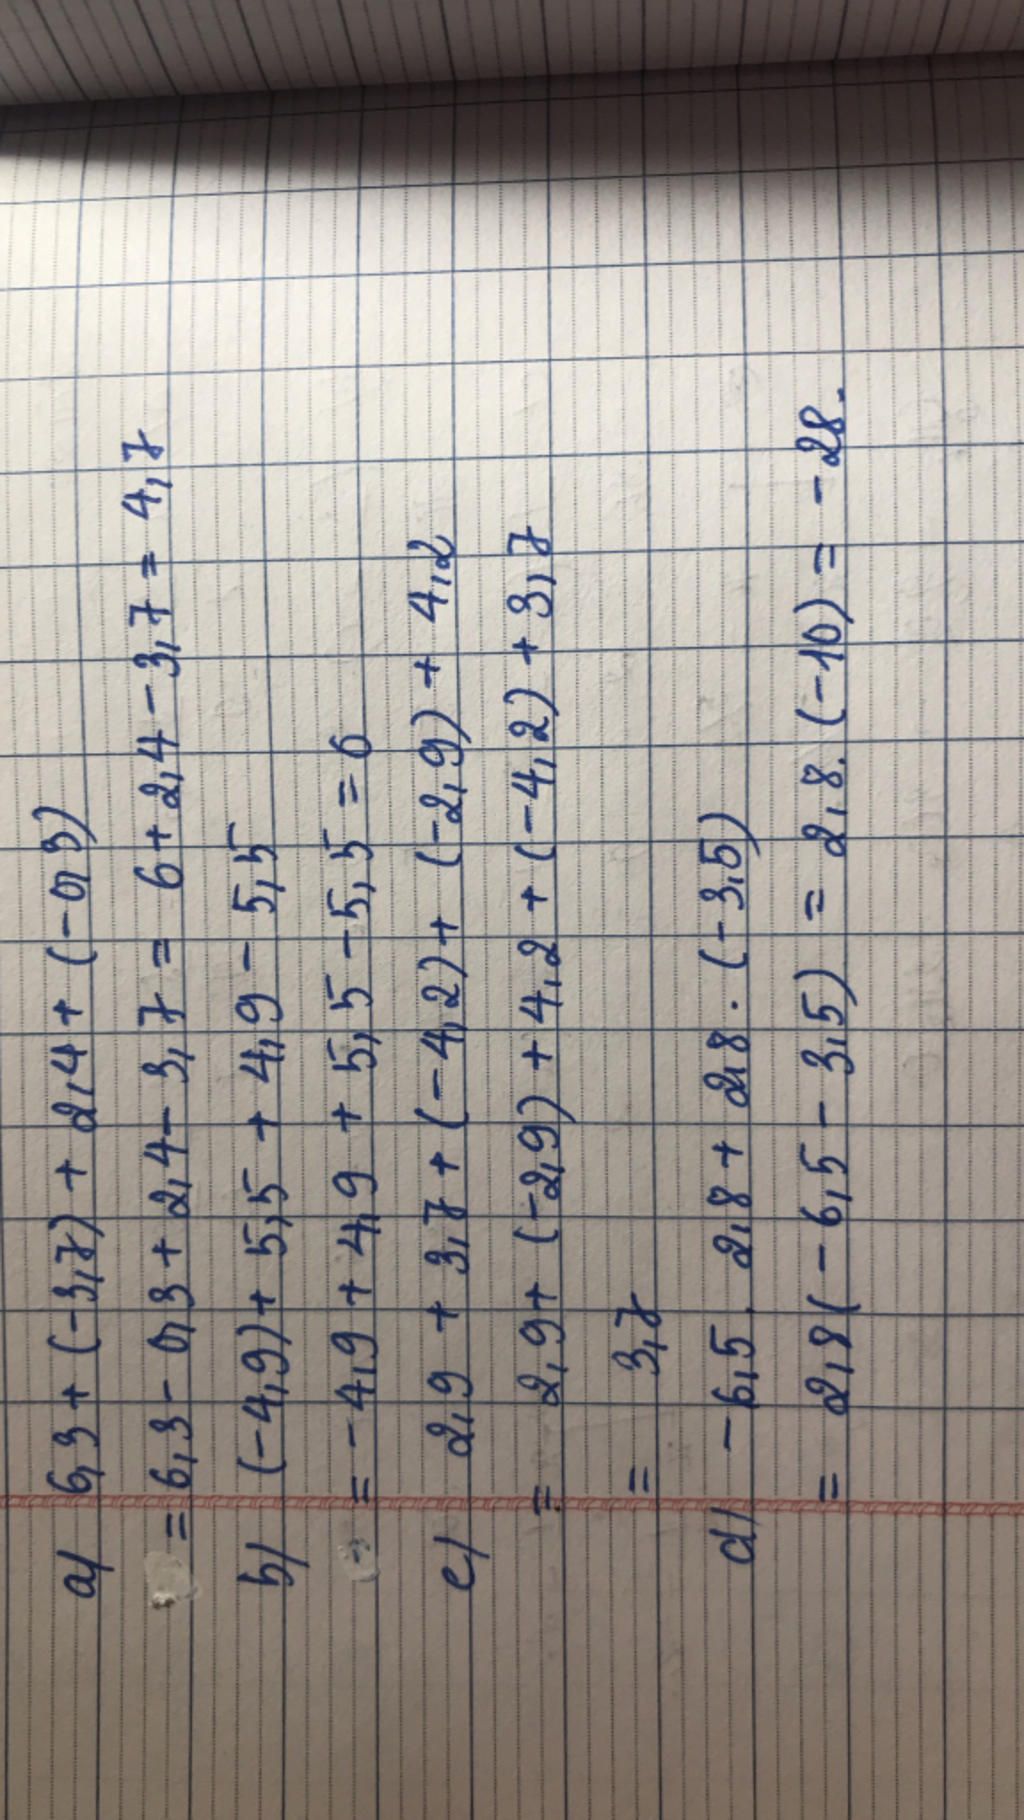 a/ 6,3 + (-3,7) + 2,4 + (-0,3)
= 6,3 - 0,3 + 2,4 - 3,7 = 6 + 2,4 - 3,7 = 4,7
b/ (-4,9) + 5,5 + 4,9 - 5,5
= -4,9 + 4,9 + 5,5 - 5,5 = 0
c/ 2,9 + 3,7 + (-4,2) + (-2,9) + 4,2
= 2,9 + (-2,9) + 4,2 + (-4,2) + 3,7
= 3,7
d/ -6,5 . 2,8 + 2,8 . (-3,5)
= 2,8 (-6,5 - 3,5) = 2,8. (-10) = -28.